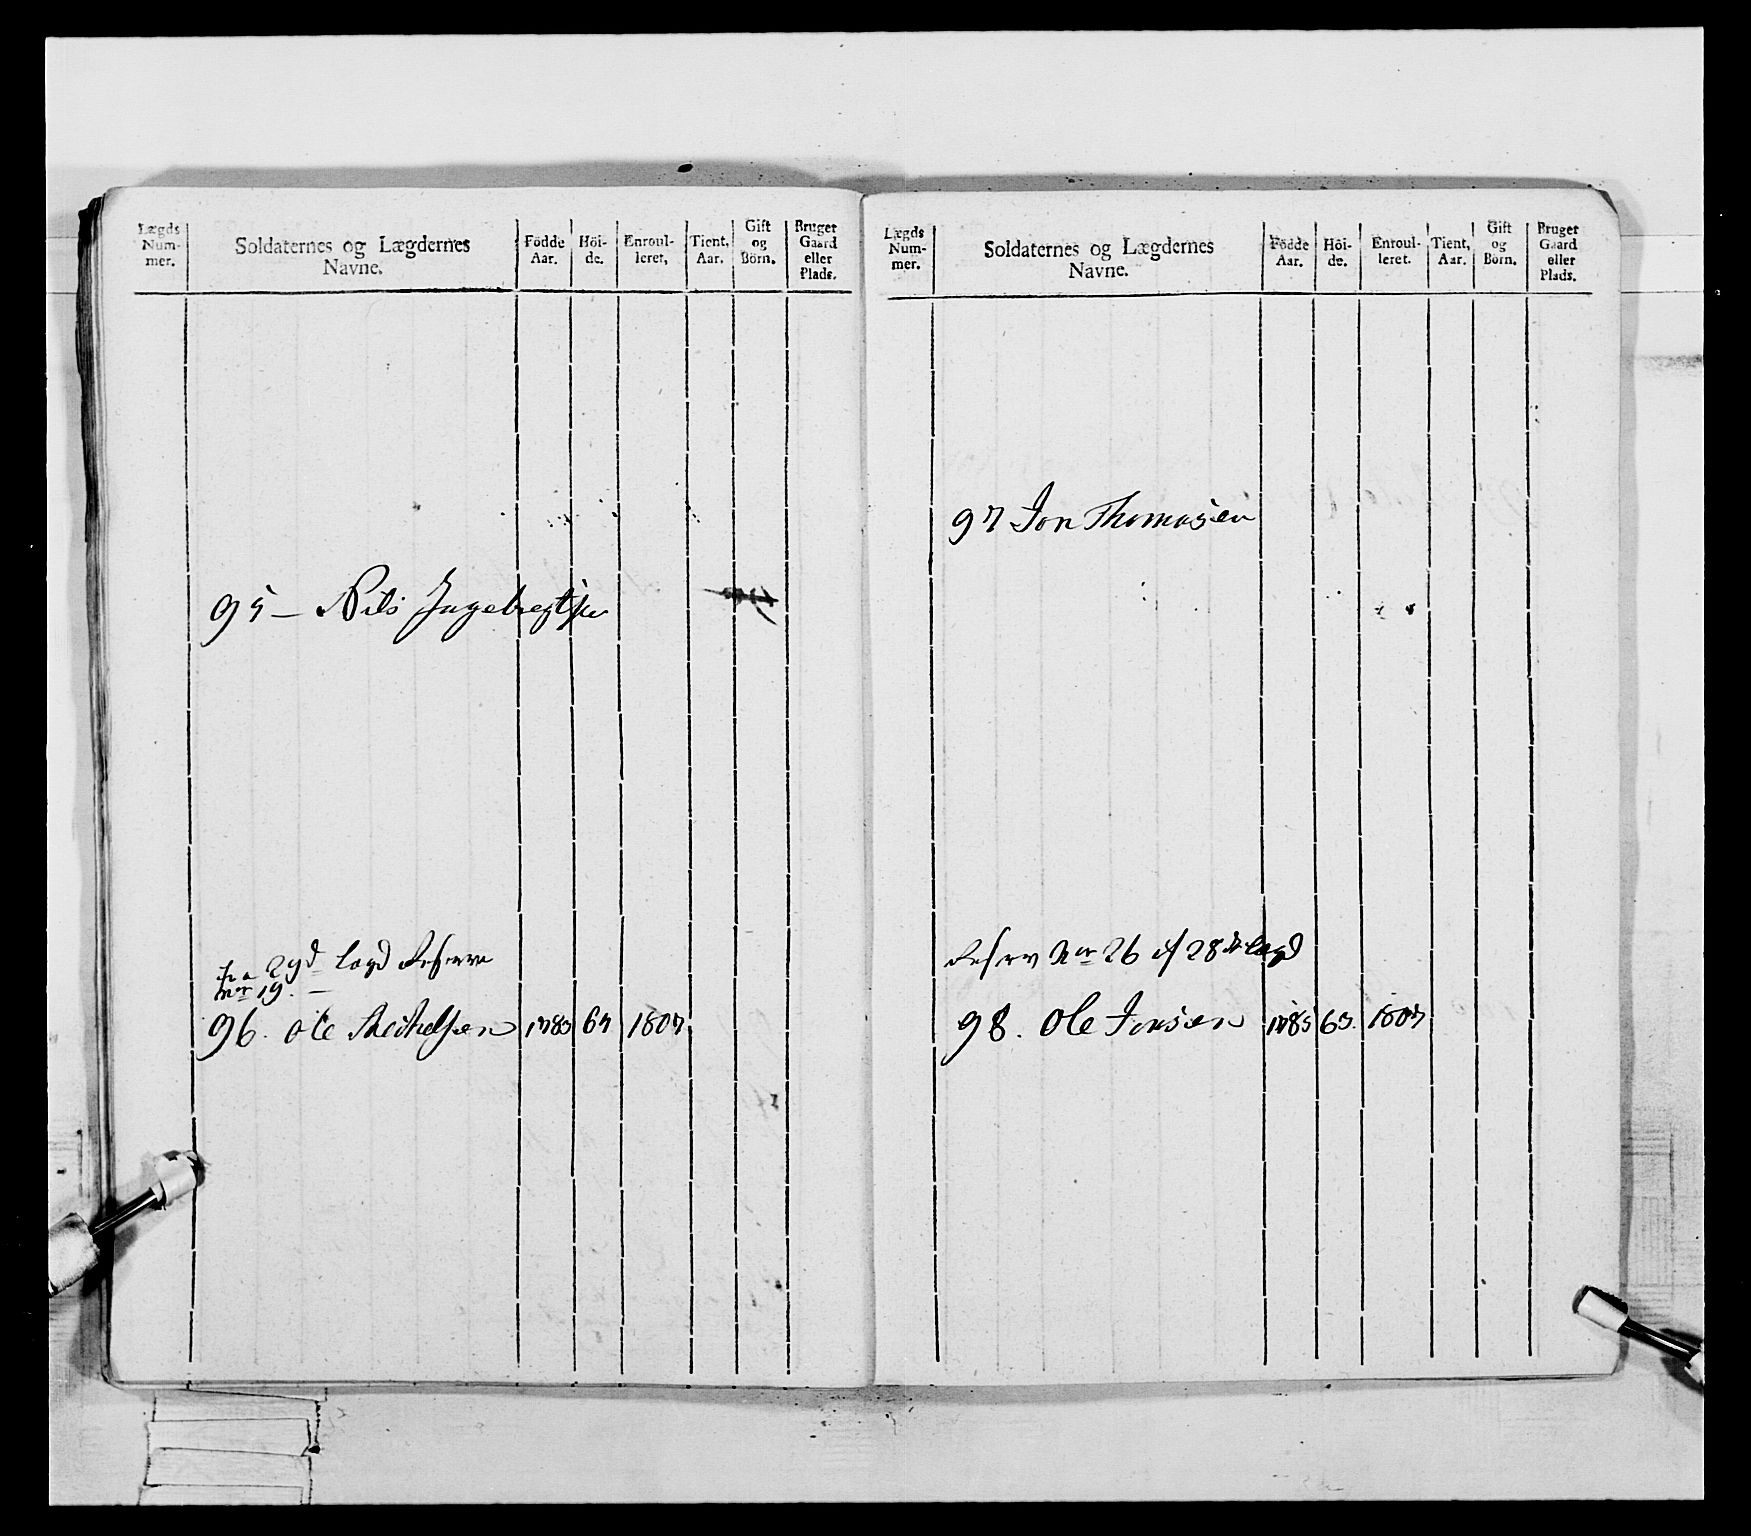 Lægds Num- mer.
Soldaternes og Lægdernes Navne.
Födde Aar.
Höi- de.
Enroul- leret,
Tient, Aar.
Gift og Börn.
Bruger Gaard eller Plads.
95 — Nils Ingebregtsen
fra 29d Lagd Reserve
Nor 19. —
96. Ole Mechelsen 1785 67 1807
Lægds Num- mer.
Soldaternes og Lægdernes Navne.
Födde Aar.
Höi- de.
Enroul- leret.
Tient, Aar.
Gift og Börn.
Bruger Gaard eller Plads.
97 Jon Thomasen
Reserv Nor 26 af 28de Lagd
98. Ole Jonsen 1785 65. 1807